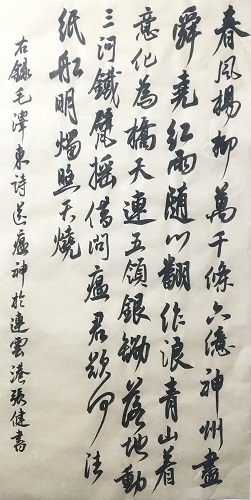 春風楊柳萬千條六億神州盡
舜堯紅雨隨心翻作浪青山着
意化為橋天連五領銀鋤落地動
三河鐵臂搖借問瘟君欲何往
紙船明燭照天燒
右錄毛澤東詩送瘟神於連雲港張健書